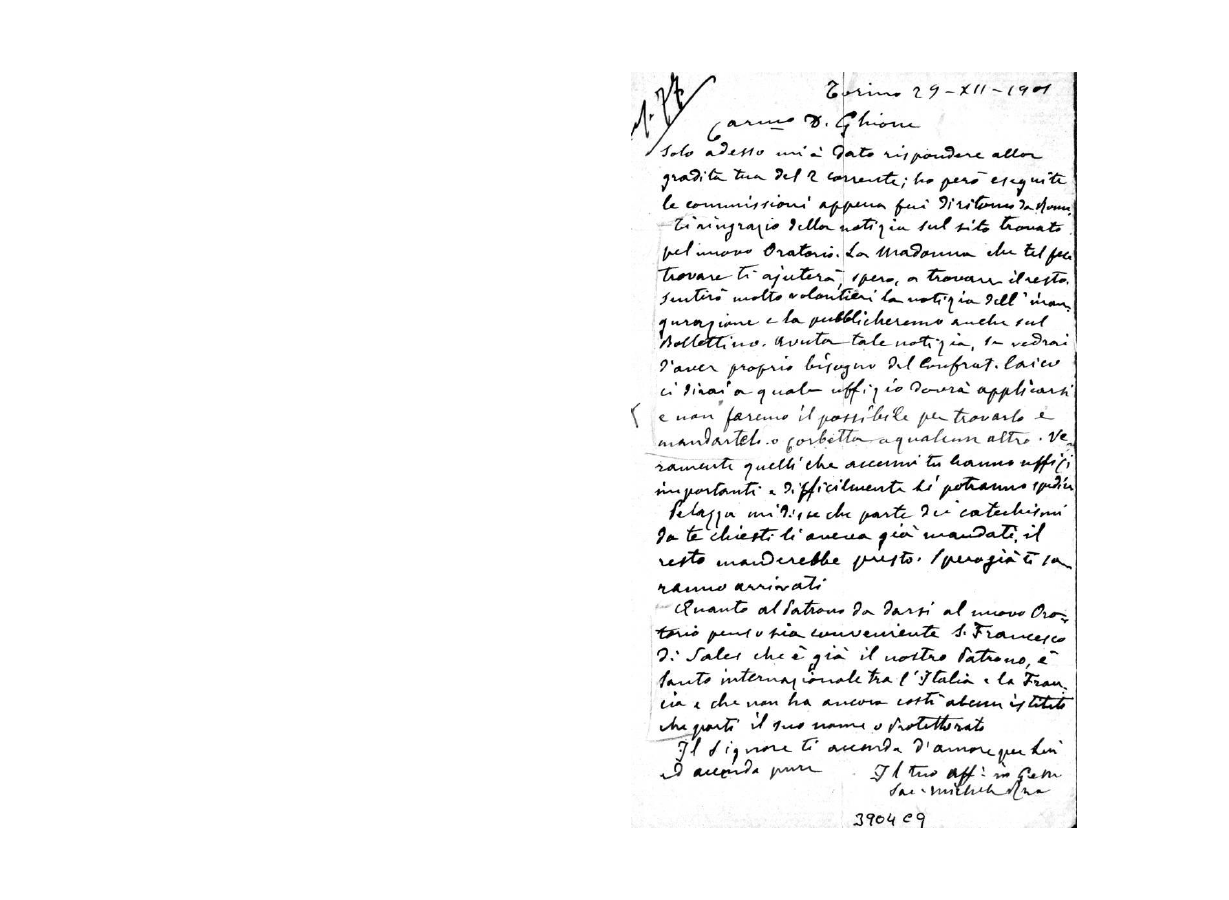 Torino 29-XII-1901
Car.mo D. Ghione
Solo adesso mi è dato rispondere alla
gradita tua del 2 corrente; ho però eseguite
le commissioni appena fui di ritorno da Roma.
Ti ringrazio della notizia sul sito trovato
pel nuovo Oratorio. La Madonna che tel fece
trovare ti ajuterà, spero, a trovare il resto.
Sentirò molto volontieri la notizia dell'inau-
gurazione e la pubblicheremo anche sul
Bollettino. Avuta tale notizia, se vedrai
d'aver proprio bisogno del Confrat. laico
ci dirai a quale uffizio dovrà applicarsi
e noi faremo il possibile per trovarlo e
mandartelo o Gorbetta o qualcun altro. Ve-
ramente quelli che accenni tu hanno uffizi
importanti e difficilmente li potranno spedire
Pelazza mi disse che parte dei catechismi
da te chiesti li aveva già mandati, il
resto manderebbe presto. Spero già ti sa-
ranno arrivati
Quanto al Patrono da darsi al nuovo Ora-
torio penso sia conveniente S. Francesco
di Sales che è già il nostro Patrono, è
Santo internazionale tra l'Italia e la Fran-
cia e che non ha ancora costì alcun istituto
che porti il suo nome o Protettorato
Il Signore ti accenda d'amore per Lui
ed accenda pure
Il tuo aff.º in G.
Sac. Michele Rua
3904 C9